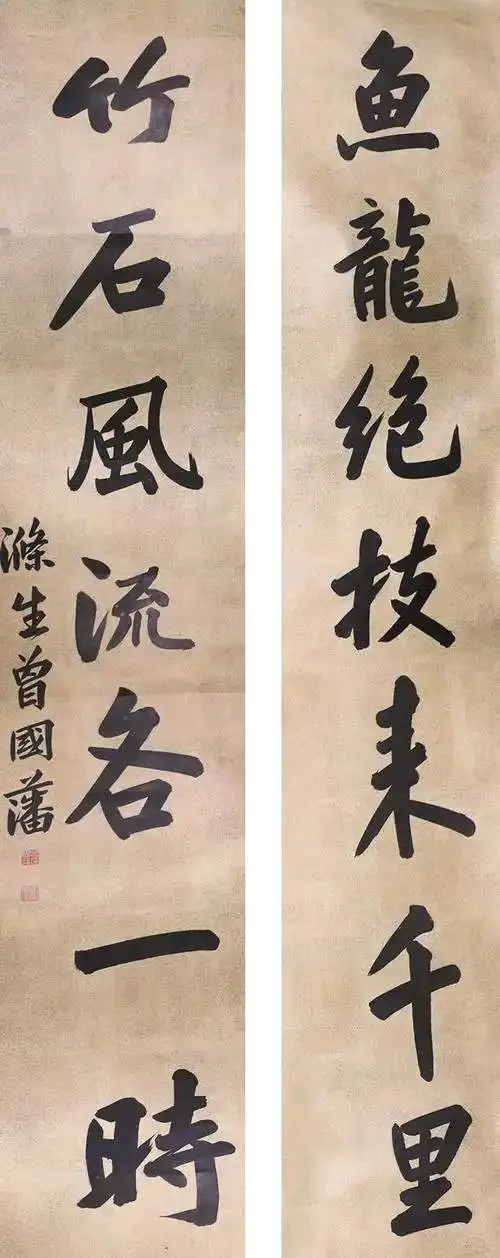 魚龍絕技来千里
竹石風流各一時
滌生曾國藩